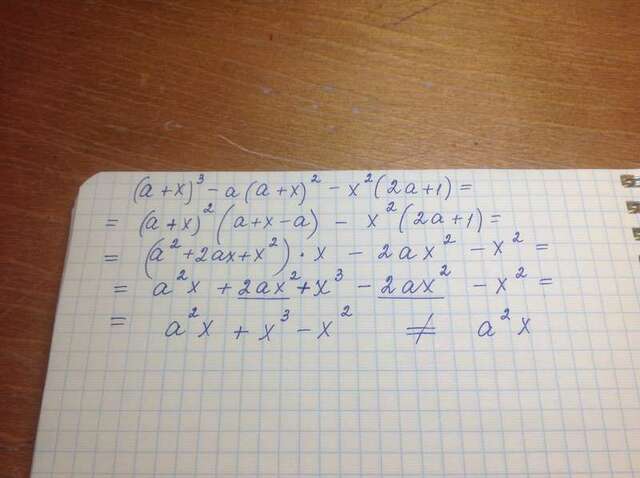 (a+x)³ - a(a+x)² - x²(2a+1) =
= (a+x)²(a+x-a) - x²(2a+1) =
= (a²+2ax+x²)·x - 2ax² - x² =
= a²x + 2ax² + x³ - 2ax² - x² =
= a²x + x³ - x² ≠ a²x